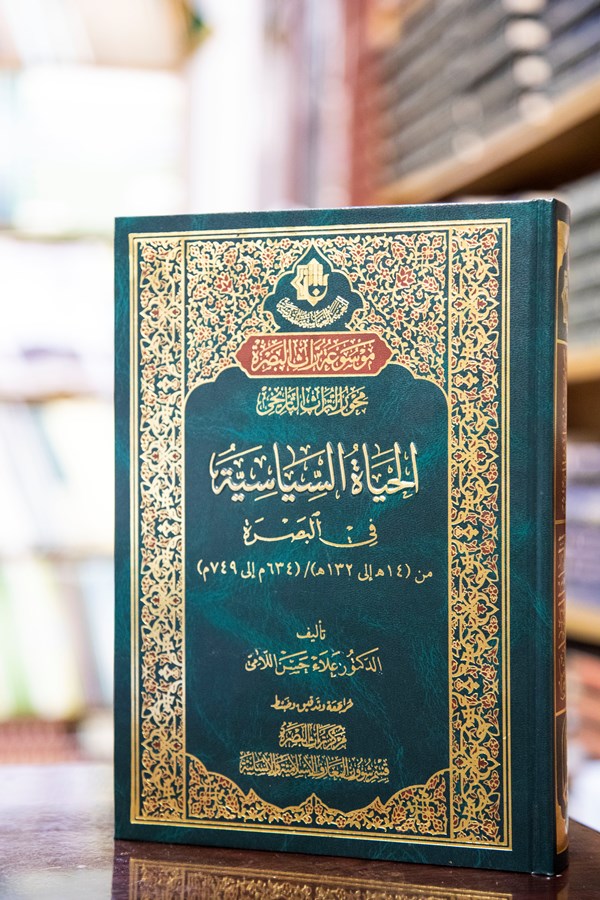 موسوعة تراث البصرة
محور التراث التاريخي
الحَيَاةُ السِّيَاسِيَّةُ
فِي البَصْرَةِ
من (١٤هـ إلى ١٣٢هـ)/ (٦٣٤م إلى ٧٤٩م)
تأليف
الدكتور علاء حسن اللامي
مراجعة وتدقيق وضبط
مركز تراث البصرة
قسم شؤون المعارف الإسلامية والإنسانية